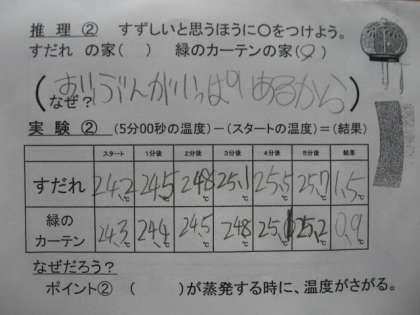 推理② すずしいと思うほうに○をつけよう。
すだれ の家( ) 緑のカーテンの家(○)
なぜ?
(すいぶんがいっぱいあるから)
実験② (5分00秒の温度)－(スタートの温度)＝(結果)
スタート 1分後 2分後 3分後 4分後 5分後 結果
すだれ 24.2℃ 24.5℃ 24.8℃ 25.1℃ 25.5℃ 25.7℃ 1.5℃
緑のカーテン 24.3℃ 24.4℃ 24.5℃ 24.8℃ 25.0℃ 25.2℃ 0.9℃
なぜだろう?
ポイント② ( )が蒸発する時に、温度がさがる。